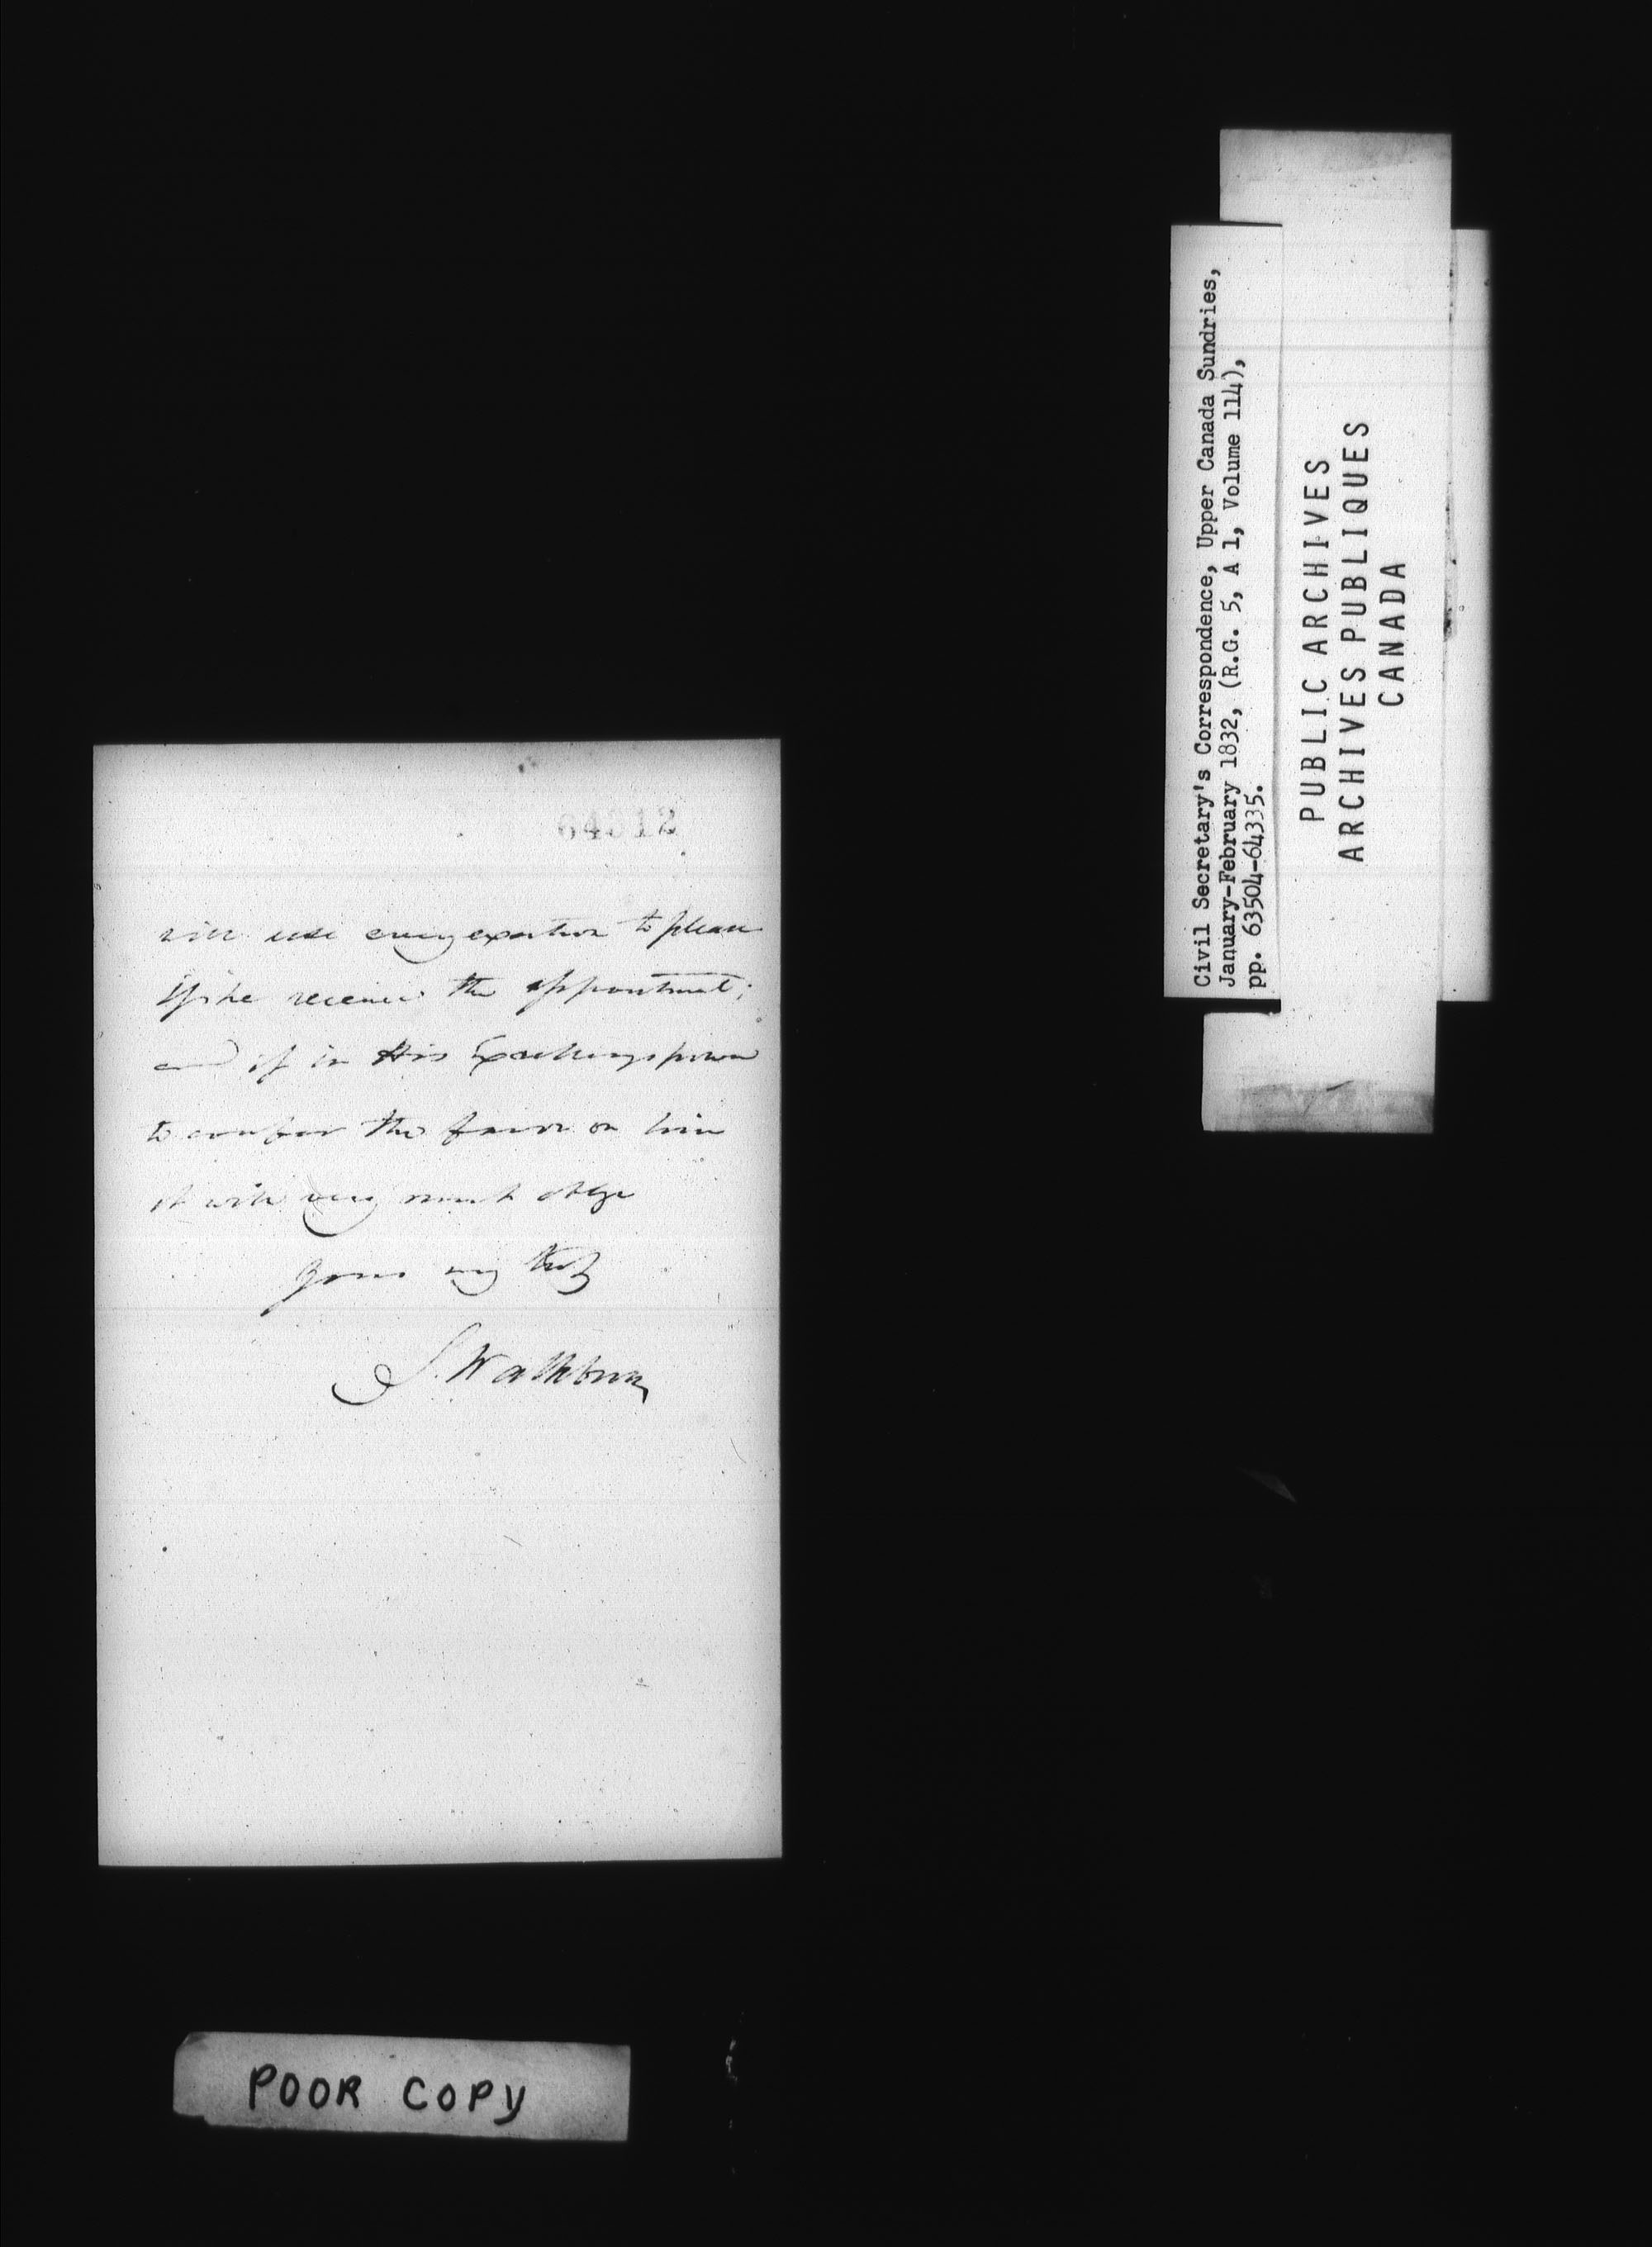 64312
will use every exertion to please
if he receives the appointment;
and if in His Excellencys power
to confer the favor on him
it will very much oblige
yours very truly
S. Washburn
POOR COPY
Civil Secretary's Correspondence, Upper Canada Sundries,
January-February 1832, (R.G. 5, A 1, Volume 114),
pp. 63504-64335.
PUBLIC ARCHIVES
ARCHIVES PUBLIQUES
CANADA